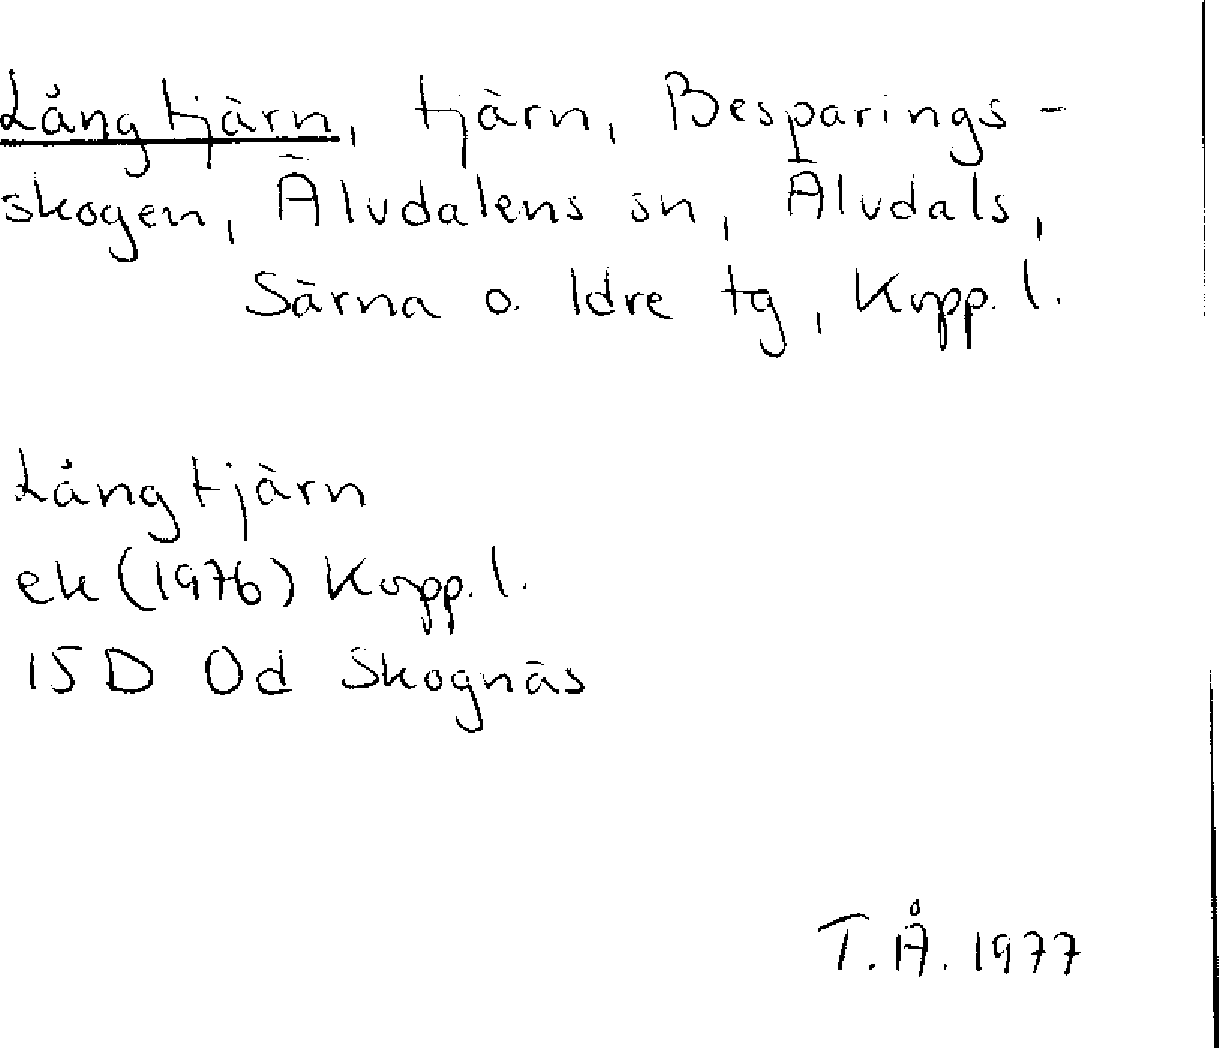 Långtjärn, tjärn, Besparings-
skogen, Älvdalens sn, Älvdals,
Särna o. Idre tg, Kopp. l.
Långtjärn
ek (1976) Kopp. l.
15 D 0d Skognäs
T.Å. 1977